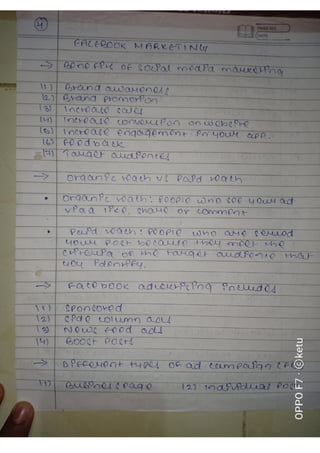 4
FACEBOOK MARKETING
→ Benefits of social media marketing
(1) Brand awareness
(2) Brand promotion
(3) Increase sales
(4) Increase conversion on website
(5) Increase engagement in your app.
(6) Feedback
(7) Target audiences
→ Organic reach vs Paid reach
• Organic reach: People who see your ad
via a like, share or comment
• Paid reach: People who are served
your post because they meet the
criteria of the target audience that
you identify.
→ Facebook advertising includes
(1) Sponsored
(2) Side column ads
(3) News feed ads
(4) Boost Posts
→ Different types of ad campaign
(1) Business page (2) Individual Post
OPPO F7 · ©ketu